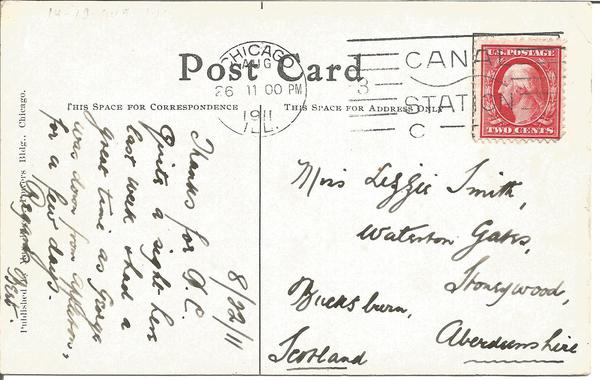 Post Card
THIS SPACE FOR CORRESPONDENCE
THIS SPACE FOR ADDRESS ONLY
CHICAGO
AUG
26 11 00 PM
1911
ILL.
3
CANAL
STATION
C
U.S. POSTAGE
TWO CENTS
8/22/11
Thanks for P.C.
Quite a sight here
last week & had a
great time as
was down from
for a few days.
Miss Lizzie Smith,
Waterton Gates,
Stoneywood,
Bucksburn,
Aberdeenshire
Scotland
Published Bldg., Chicago.